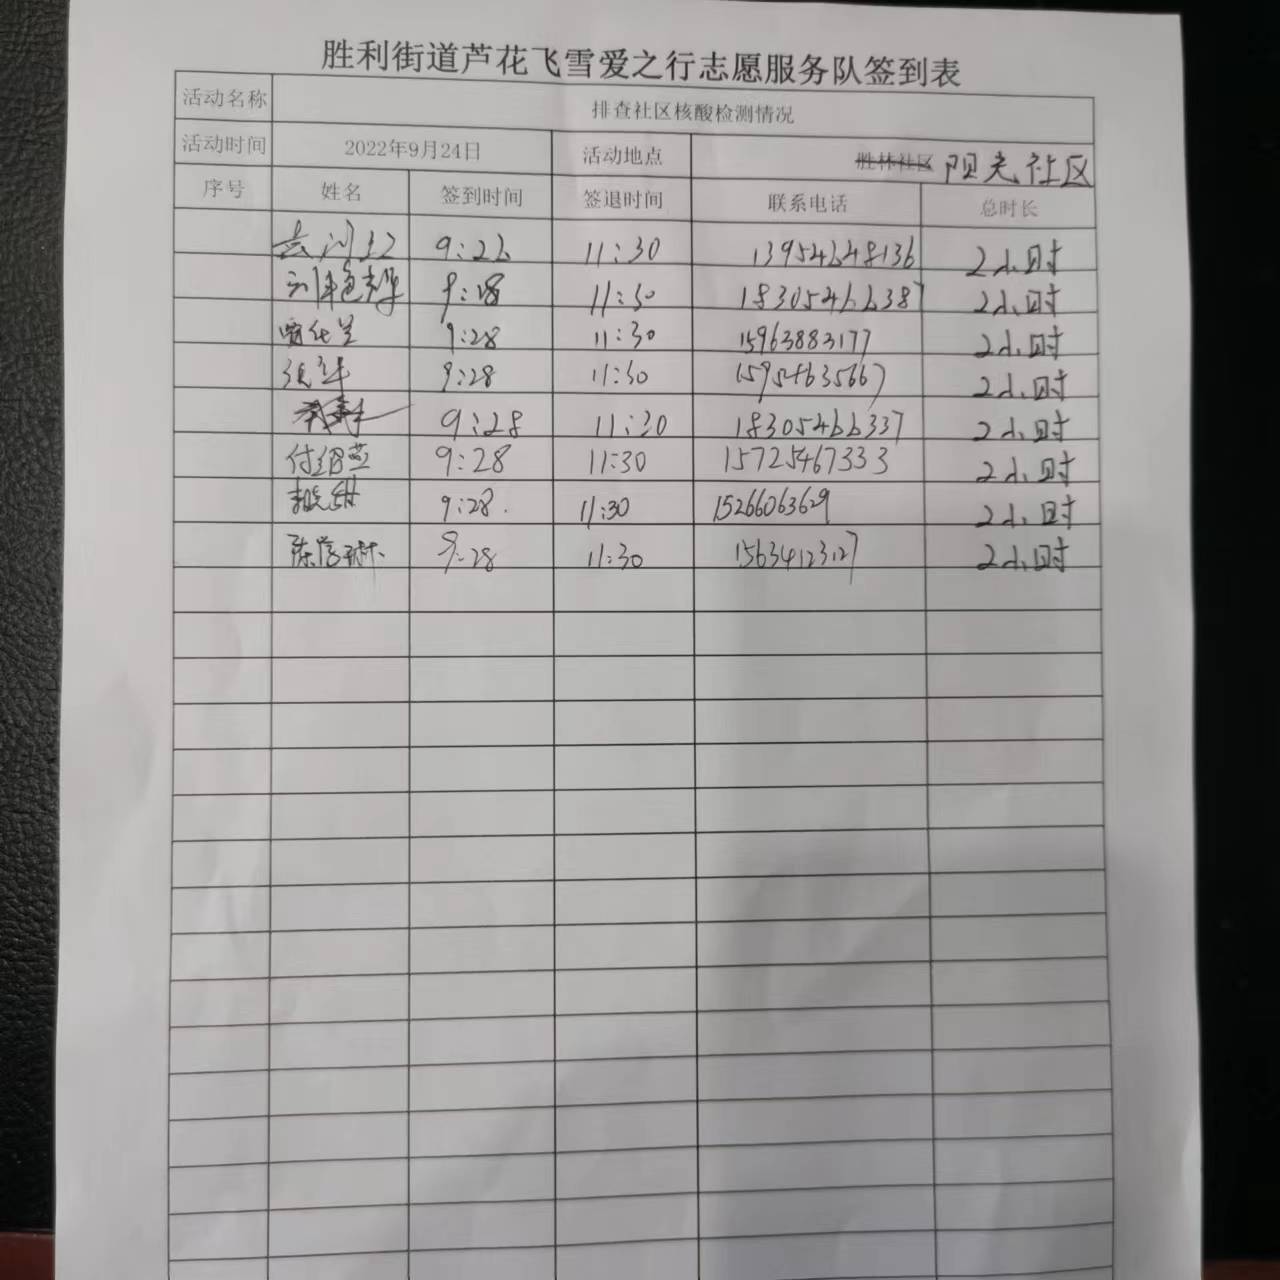 胜利街道芦花飞雪爱之行志愿服务队签到表
活动名称 排查社区核酸检测情况
活动时间 2022年9月24日 活动地点 胜林社区 阳光社区
序号 姓名 签到时间 签退时间 联系电话 总时长
9:26 11:30 13954648136 2小时
9:28 11:30 18305466387 2小时
9:28 11:30 15963883177 2小时
9:28 11:30 15954635667 2小时
9:28 11:30 18305466337 2小时
付绍燕 9:28 11:30 15725467333 2小时
9:28. 11:30 15266063629 2小时
9:28 11:30 15634123127 2小时